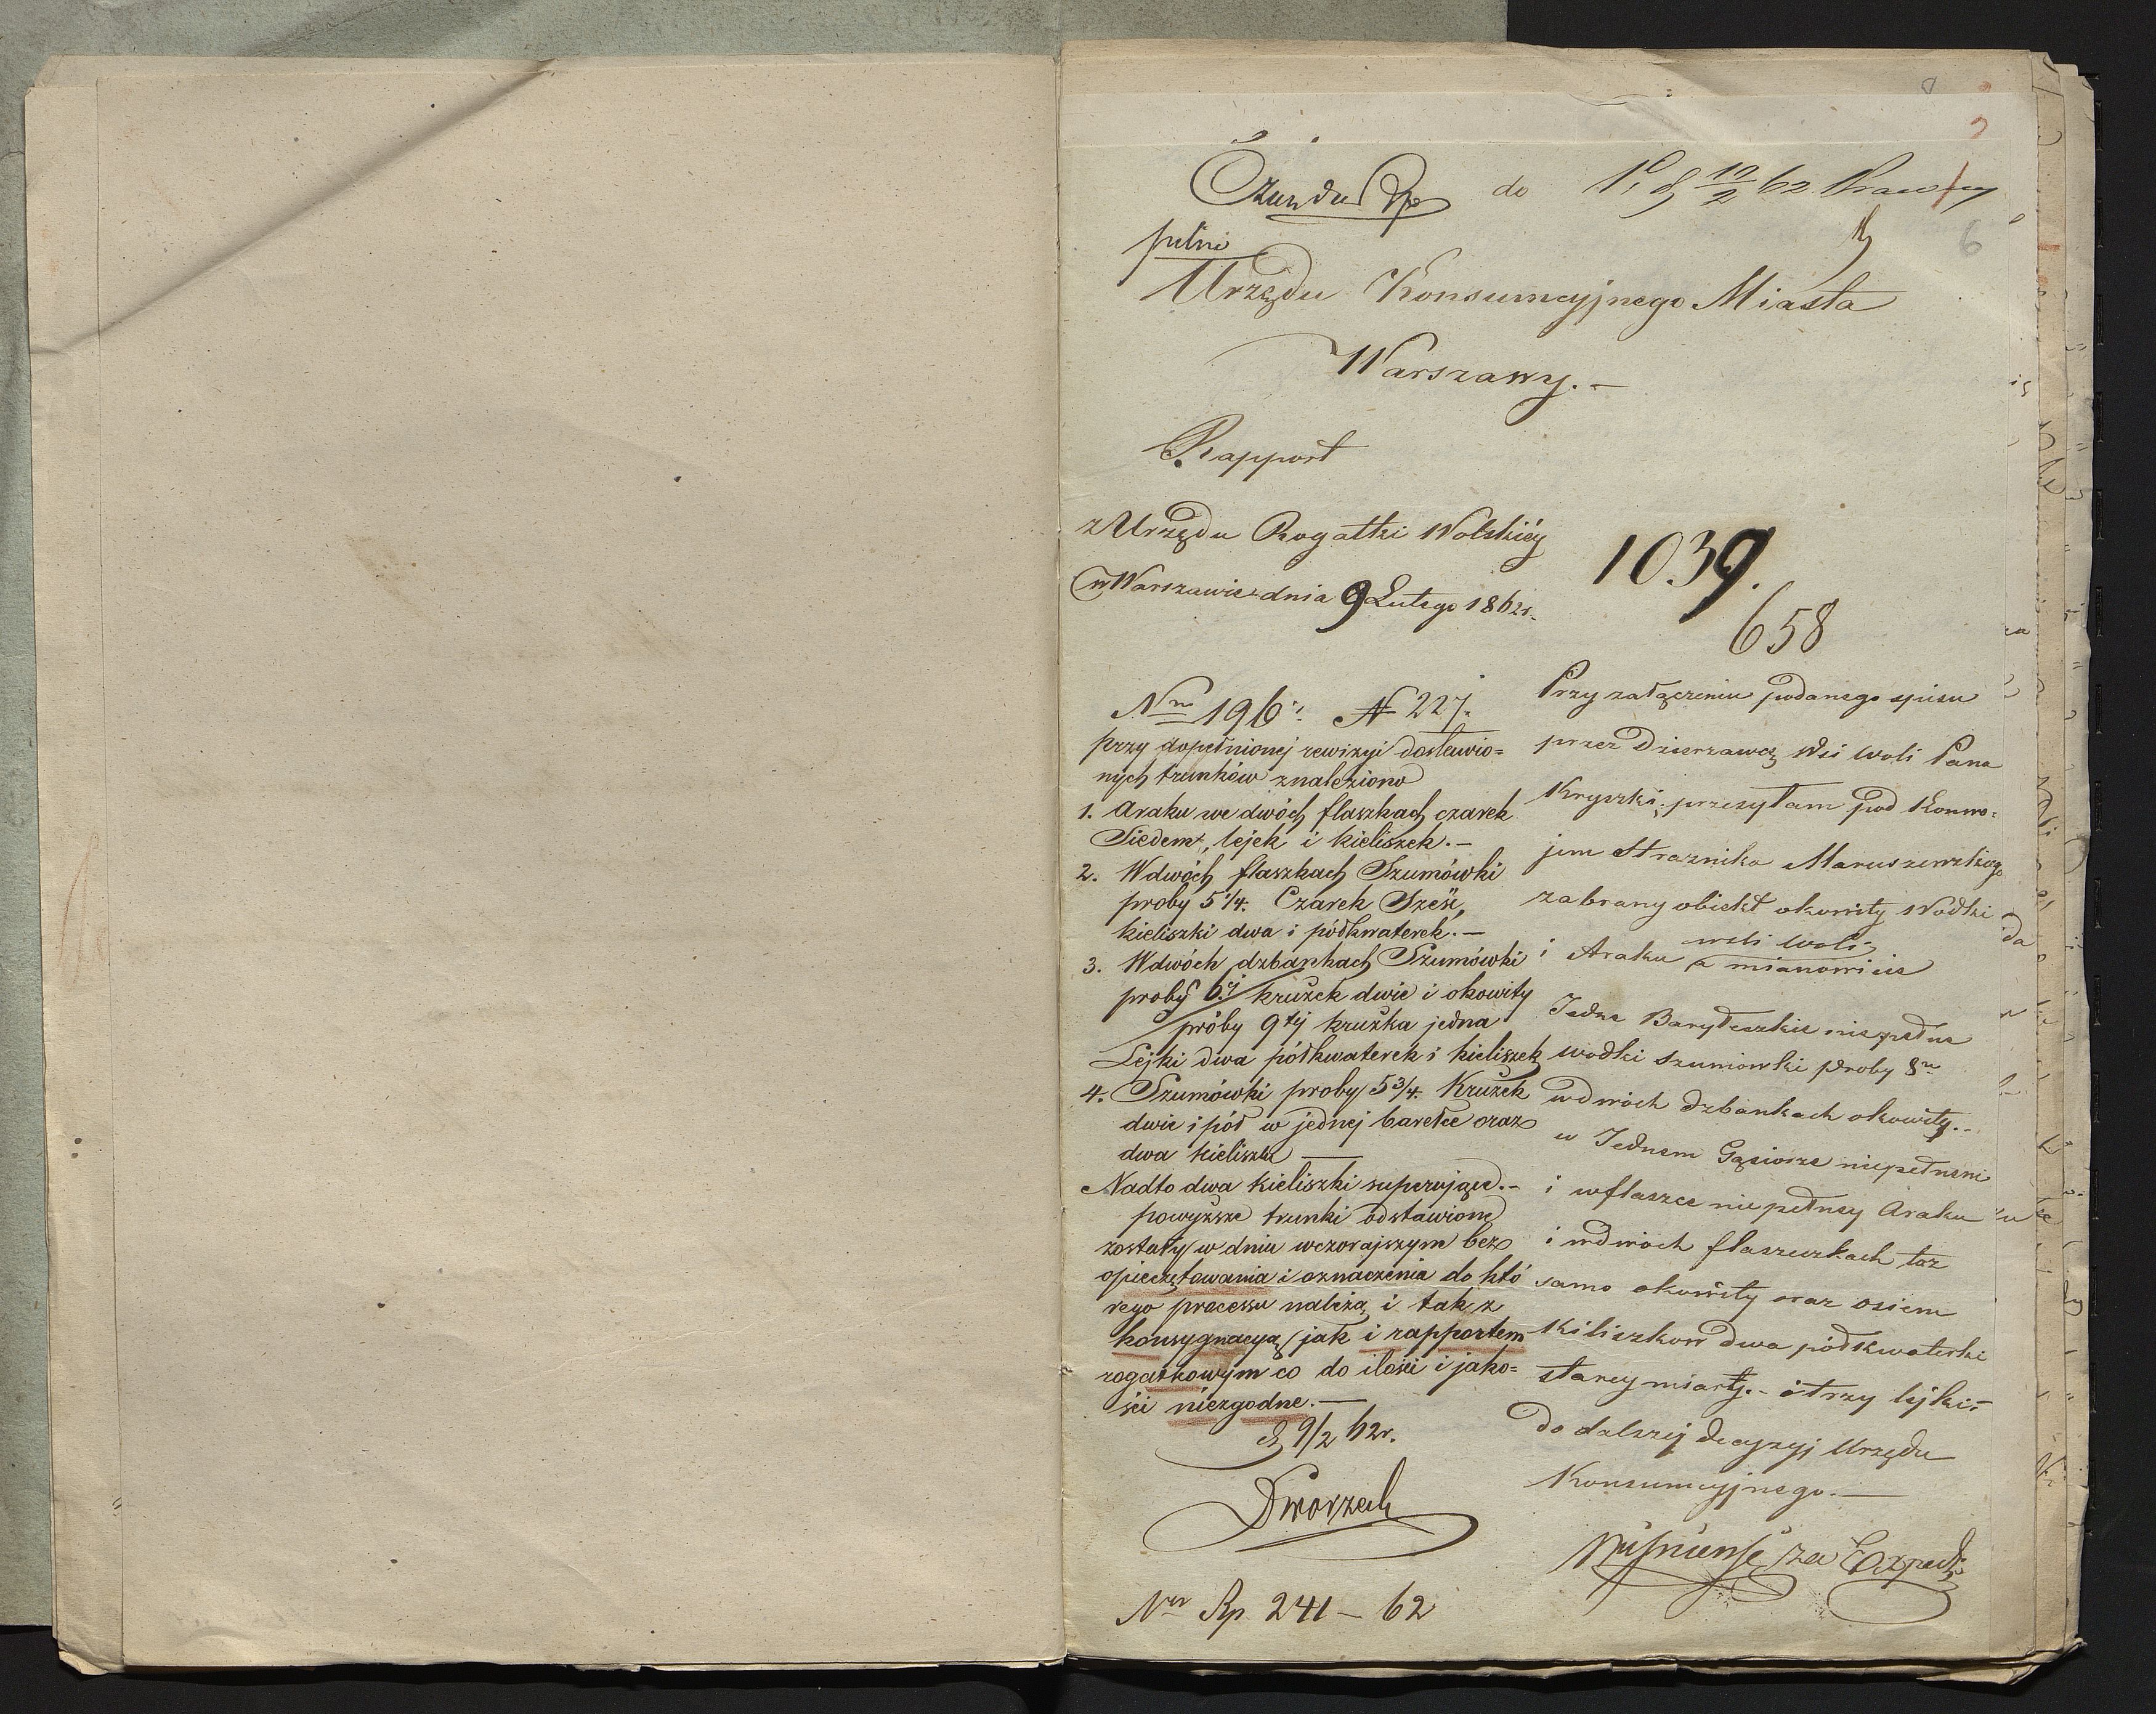 do
10/2 62
pilno
Urzędu Konsumcyjnego Miasta
Warszawy. –
6
Rapport
z Urzędu Rogatki Wolskiéy
w Warszawie dnia 9 Lutego 1862r.
1039.
658
Nro 196. N 227.
przy dopełnionej rewizyi dostawio=
nych trunków znaleziono
1. Araku we dwóch flaszkach czarek
Siedem, lejek i kieliszek. –
2. W dwóch flaszkach Szumówki
proby 5 1/4. Czarek Sześć,
kieliszki dwa i półkwaterek. –
3. W dwóch dzbankach Szumówki
proby 6ej krużek dwie i okowity
próby 9tej krużka jedna
Lejki dwa półkwaterek i kieliszek
4. Szumówki proby 5 3/4. Krużek
dwie i pół w jednej baretce oraz
dwa kieliszki
Nadto dwa kieliszki
powyższe trunki odstawione
zostały w dniu wczorajszym bez
opieczętowania i oznaczenia do któ
rego processu należą i tak z
konsygnacyą jak i rapportem
rogatkowym co do ilości i jako=
ści niezgodne. –
9/2 62r.
Dworzach
Nro Rp 241 – 62
Przy załączeniu podanego spisu
przez Dzierzawcę Wsi Woli Pana
Kryszki, przesyłam pod Konwo=
jem Straznika Maruszewskiego
zabrany obiekt okowity Wodki
wsi Woli
i Araku a mianowicie
Jedne Baryłeczkie niepełne
wodki szumowki proby 8
w dwóch dzbankach okowity. –
w Jednem Gąsiorze niepełnem
i w flaszce niepełney Araku
i w dwóch flaszeczkach toż
samo okowity oraz osiem
Kiliszkow dwa półkwaterki
starey miary. – i trzy lejki –
do dalszej decyzyj Urzędu
Konsumcyjnego. –
za Exped.